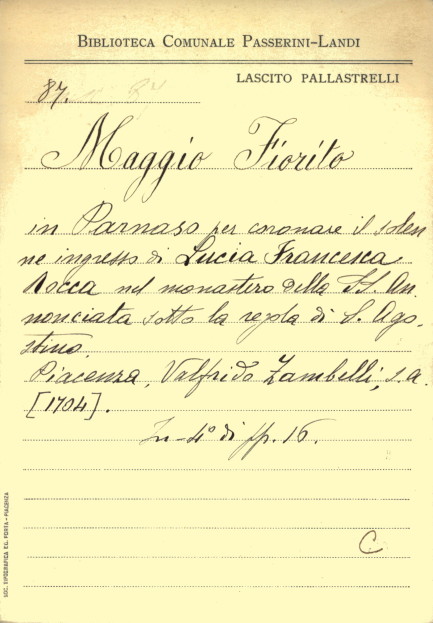 BIBLIOTECA COMUNALE PASSERINI-LANDI
LASCITO PALLASTRELLI
87.
Maggio Fiorito
in Parnaso per coronare il solen
ne ingresso di Lucia Francesca
Rocca nel monastero della SS. An
nonciata sotto la regola di S. Ago-
stino.
Piacenza, Valfrido Zambelli, s.a.
[1704].
In-4° di pp. 16.
C
SOC. TIPOGRAFICA ED. PORTA - PIACENZA